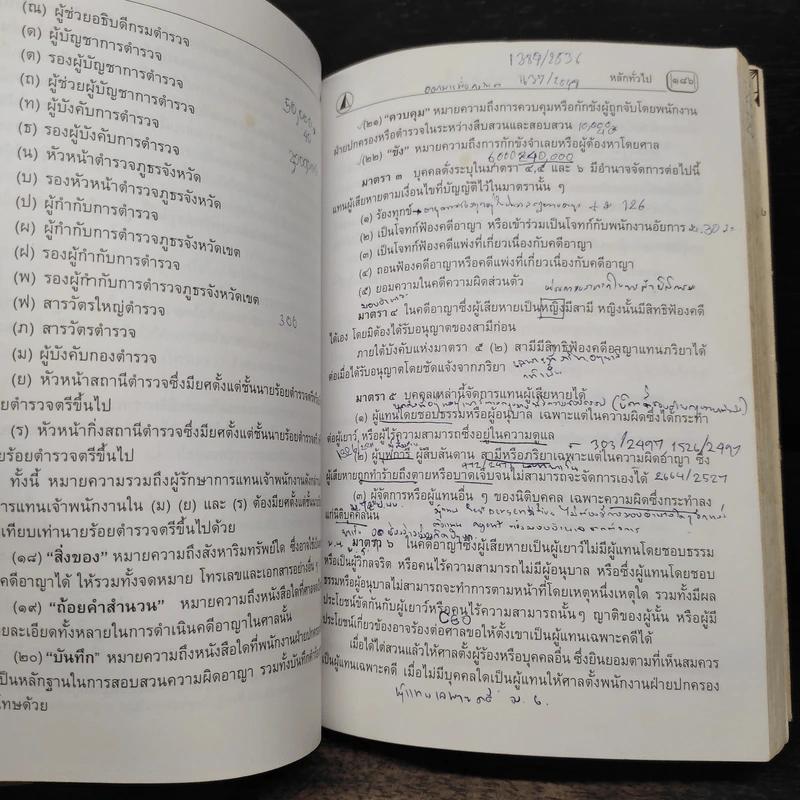 (ณ) ผู้ช่วยอธิบดีกรมตำรวจ
(ด) ผู้บัญชาการตำรวจ
(ต) รองผู้บัญชาการตำรวจ
(ถ) ผู้ช่วยผู้บัญชาการตำรวจ
(ท) ผู้บังคับการตำรวจ
(ธ) รองผู้บังคับการตำรวจ
(น) หัวหน้าตำรวจภูธรจังหวัด
(บ) รองหัวหน้าตำรวจภูธรจังหวัด
(ป) ผู้กำกับการตำรวจ
(ผ) ผู้กำกับการตำรวจภูธรจังหวัดเขต
(ฝ) รองผู้กำกับการตำรวจ
(พ) รองผู้กำกับการตำรวจภูธรจังหวัดเขต
(ฟ) สารวัตรใหญ่ตำรวจ
300
(ภ) สารวัตรตำรวจ
(ม) ผู้บังคับกองตำรวจ
(ย) หัวหน้าสถานีตำรวจซึ่งมียศตั้งแต่ชั้นนายร้อยตำรวจตรี
ยตำรวจตรีขึ้นไป
(ร) หัวหน้ากิ่งสถานีตำรวจซึ่งมียศตั้งแต่ชั้นนายร้อยตำรวจ
ยร้อยตำรวจตรีขึ้นไป
ทั้งนี้ หมายความรวมถึงผู้รักษาการแทนเจ้าพนักงานดัง
การแทนเจ้าพนักงานใน (ม) (ย) และ (ร) ต้องมียศตั้งแต่ชั้น
เทียบเท่านายร้อยตำรวจตรีขึ้นไปด้วย
(๑๘) "สิ่งของ" หมายความถึงสังหาริมทรัพย์ใด ซึ่งอาจใช้เป็น
คดีอาญาได้ ให้รวมทั้งจดหมาย โทรเลขและเอกสารอย่างอื่น ๆ
(๑๙) "ถ้อยคำสำนวน" หมายความถึงหนังสือใดที่ศาลจด
ยละเอียดทั้งหลายในการดำเนินคดีอาญาในศาลนั้น
(๒๐) "บันทึก" หมายความถึงหนังสือใดที่พนักงานฝ่ายปกครอง
เป็นหลักฐานในการสอบสวนความผิดอาญา รวมทั้งบันทึก
โทษด้วย
1389/2536
1637/2549
หลักทั่วไป ๑๔๖
(๒๑) "ควบคุม" หมายความถึงการควบคุมหรือกักขังผู้ถูกจับโดยพนักงาน
ฝ่ายปกครองหรือตำรวจในระหว่างสืบสวนและสอบสวน 10,000
(๒๒) "ขัง" หมายความถึงการกักขังจำเลยหรือผู้ต้องหาโดยศาล
มาตรา ๓ บุคคลดั่งระบุในมาตรา ๔, ๕ และ ๖ มีอำนาจจัดการต่อไปนี้
แทนผู้เสียหายตามเงื่อนไขที่บัญญัติไว้ในมาตรานั้น ๆ
(๑) ร้องทุกข์ + ม 126
(๒) เป็นโจทก์ฟ้องคดีอาญา หรือเข้าร่วมเป็นโจทก์กับพนักงานอัยการ
(๓) เป็นโจทก์ฟ้องคดีแพ่งที่เกี่ยวเนื่องกับคดีอาญา
(๔) ถอนฟ้องคดีอาญาหรือคดีแพ่งที่เกี่ยวเนื่องกับคดีอาญา
(๕) ยอมความในคดีความผิดส่วนตัว
มาตรา ๔ ในคดีอาญาซึ่งผู้เสียหายเป็นหญิงมีสามี หญิงนั้นมีสิทธิฟ้องคดี
ได้เอง โดยมิต้องได้รับอนุญาตของสามีก่อน
ภายใต้บังคับแห่งมาตรา ๕ (๒) สามีมีสิทธิฟ้องคดีอาญาแทนภริยาได้
ต่อเมื่อได้รับอนุญาตโดยชัดแจ้งจากภริยา
มาตรา ๕ บุคคลเหล่านี้จัดการแทนผู้เสียหายได้
(๑) ผู้แทนโดยชอบธรรมหรือผู้อนุบาล เฉพาะแต่ในความผิดซึ่งได้กระทำ
ต่อผู้เยาว์ หรือผู้ไร้ความสามารถซึ่งอยู่ในความดูแล
303/2497 1526/2497
(๒) ผู้บุพการี ผู้สืบสันดาน สามีหรือภริยาเฉพาะแต่ในความผิดอาญา ซึ่ง
ผู้เสียหายถูกทำร้ายถึงตายหรือบาดเจ็บจนไม่สามารถจะจัดการเองได้ 2664/2527
(๓) ผู้จัดการหรือผู้แทนอื่น ๆ ของนิติบุคคล เฉพาะความผิดซึ่งกระทำลง
แก่นิติบุคคลนั้น
มาตรา ๖ ในคดีอาญาซึ่งผู้เสียหายเป็นผู้เยาว์ไม่มีผู้แทนโดยชอบธรรม
หรือเป็นผู้วิกลจริต หรือคนไร้ความสามารถไม่มีผู้อนุบาล หรือซึ่งผู้แทนโดยชอบ
ธรรมหรือผู้อนุบาลไม่สามารถจะทำการตามหน้าที่โดยเหตุหนึ่งเหตุใด รวมทั้งมีผล
ประโยชน์ขัดกันกับผู้เยาว์หรือคนไร้ความสามารถนั้นๆ ญาติของผู้นั้น หรือผู้มี
ประโยชน์เกี่ยวข้องอาจร้องต่อศาลขอให้ตั้งเขาเป็นผู้แทนเฉพาะคดีได้
เมื่อได้ไต่สวนแล้วให้ศาลตั้งผู้ร้องหรือบุคคลอื่น ซึ่งยินยอมตามที่เห็นสมควร
เป็นผู้แทนเฉพาะคดี เมื่อไม่มีบุคคลใดเป็นผู้แทนให้ศาลตั้งพนักงานฝ่ายปกครอง
ผู้แทนเฉพาะคดี ม. 6.